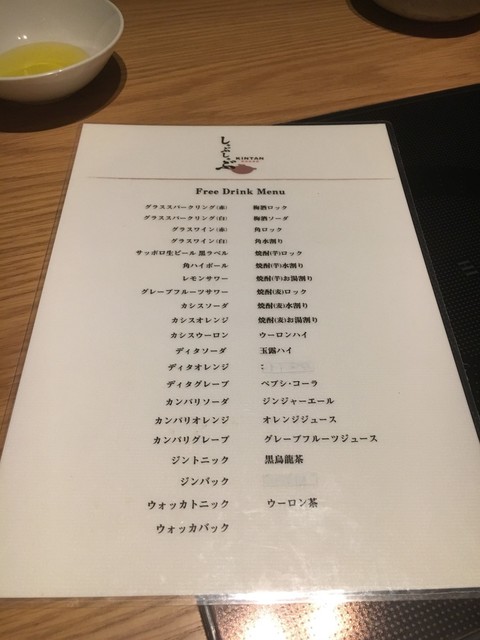 しゃぶしゃぶ
KINTAN
Free Drink Menu
グラススパークリング(赤) 梅酒ロック
グラススパークリング(白) 梅酒ソーダ
グラスワイン(赤) 角ロック
グラスワイン(白) 角水割り
サッポロ生ビール 黒ラベル 焼酎(芋)ロック
角ハイボール 焼酎(芋)水割り
レモンサワー 焼酎(芋)お湯割り
グレープフルーツサワー 焼酎(麦)ロック
カシスソーダ 焼酎(麦)水割り
カシスオレンジ 焼酎(麦)お湯割り
カシスウーロン ウーロンハイ
ディタソーダ 玉露ハイ
ディタオレンジ :
ディタグレープ ペプシ・コーラ
カンパリソーダ ジンジャーエール
カンパリオレンジ オレンジジュース
カンパリグレープ グレープフルーツジュース
ジントニック 黒烏龍茶
ジンバック
ウォッカトニック ウーロン茶
ウォッカバック